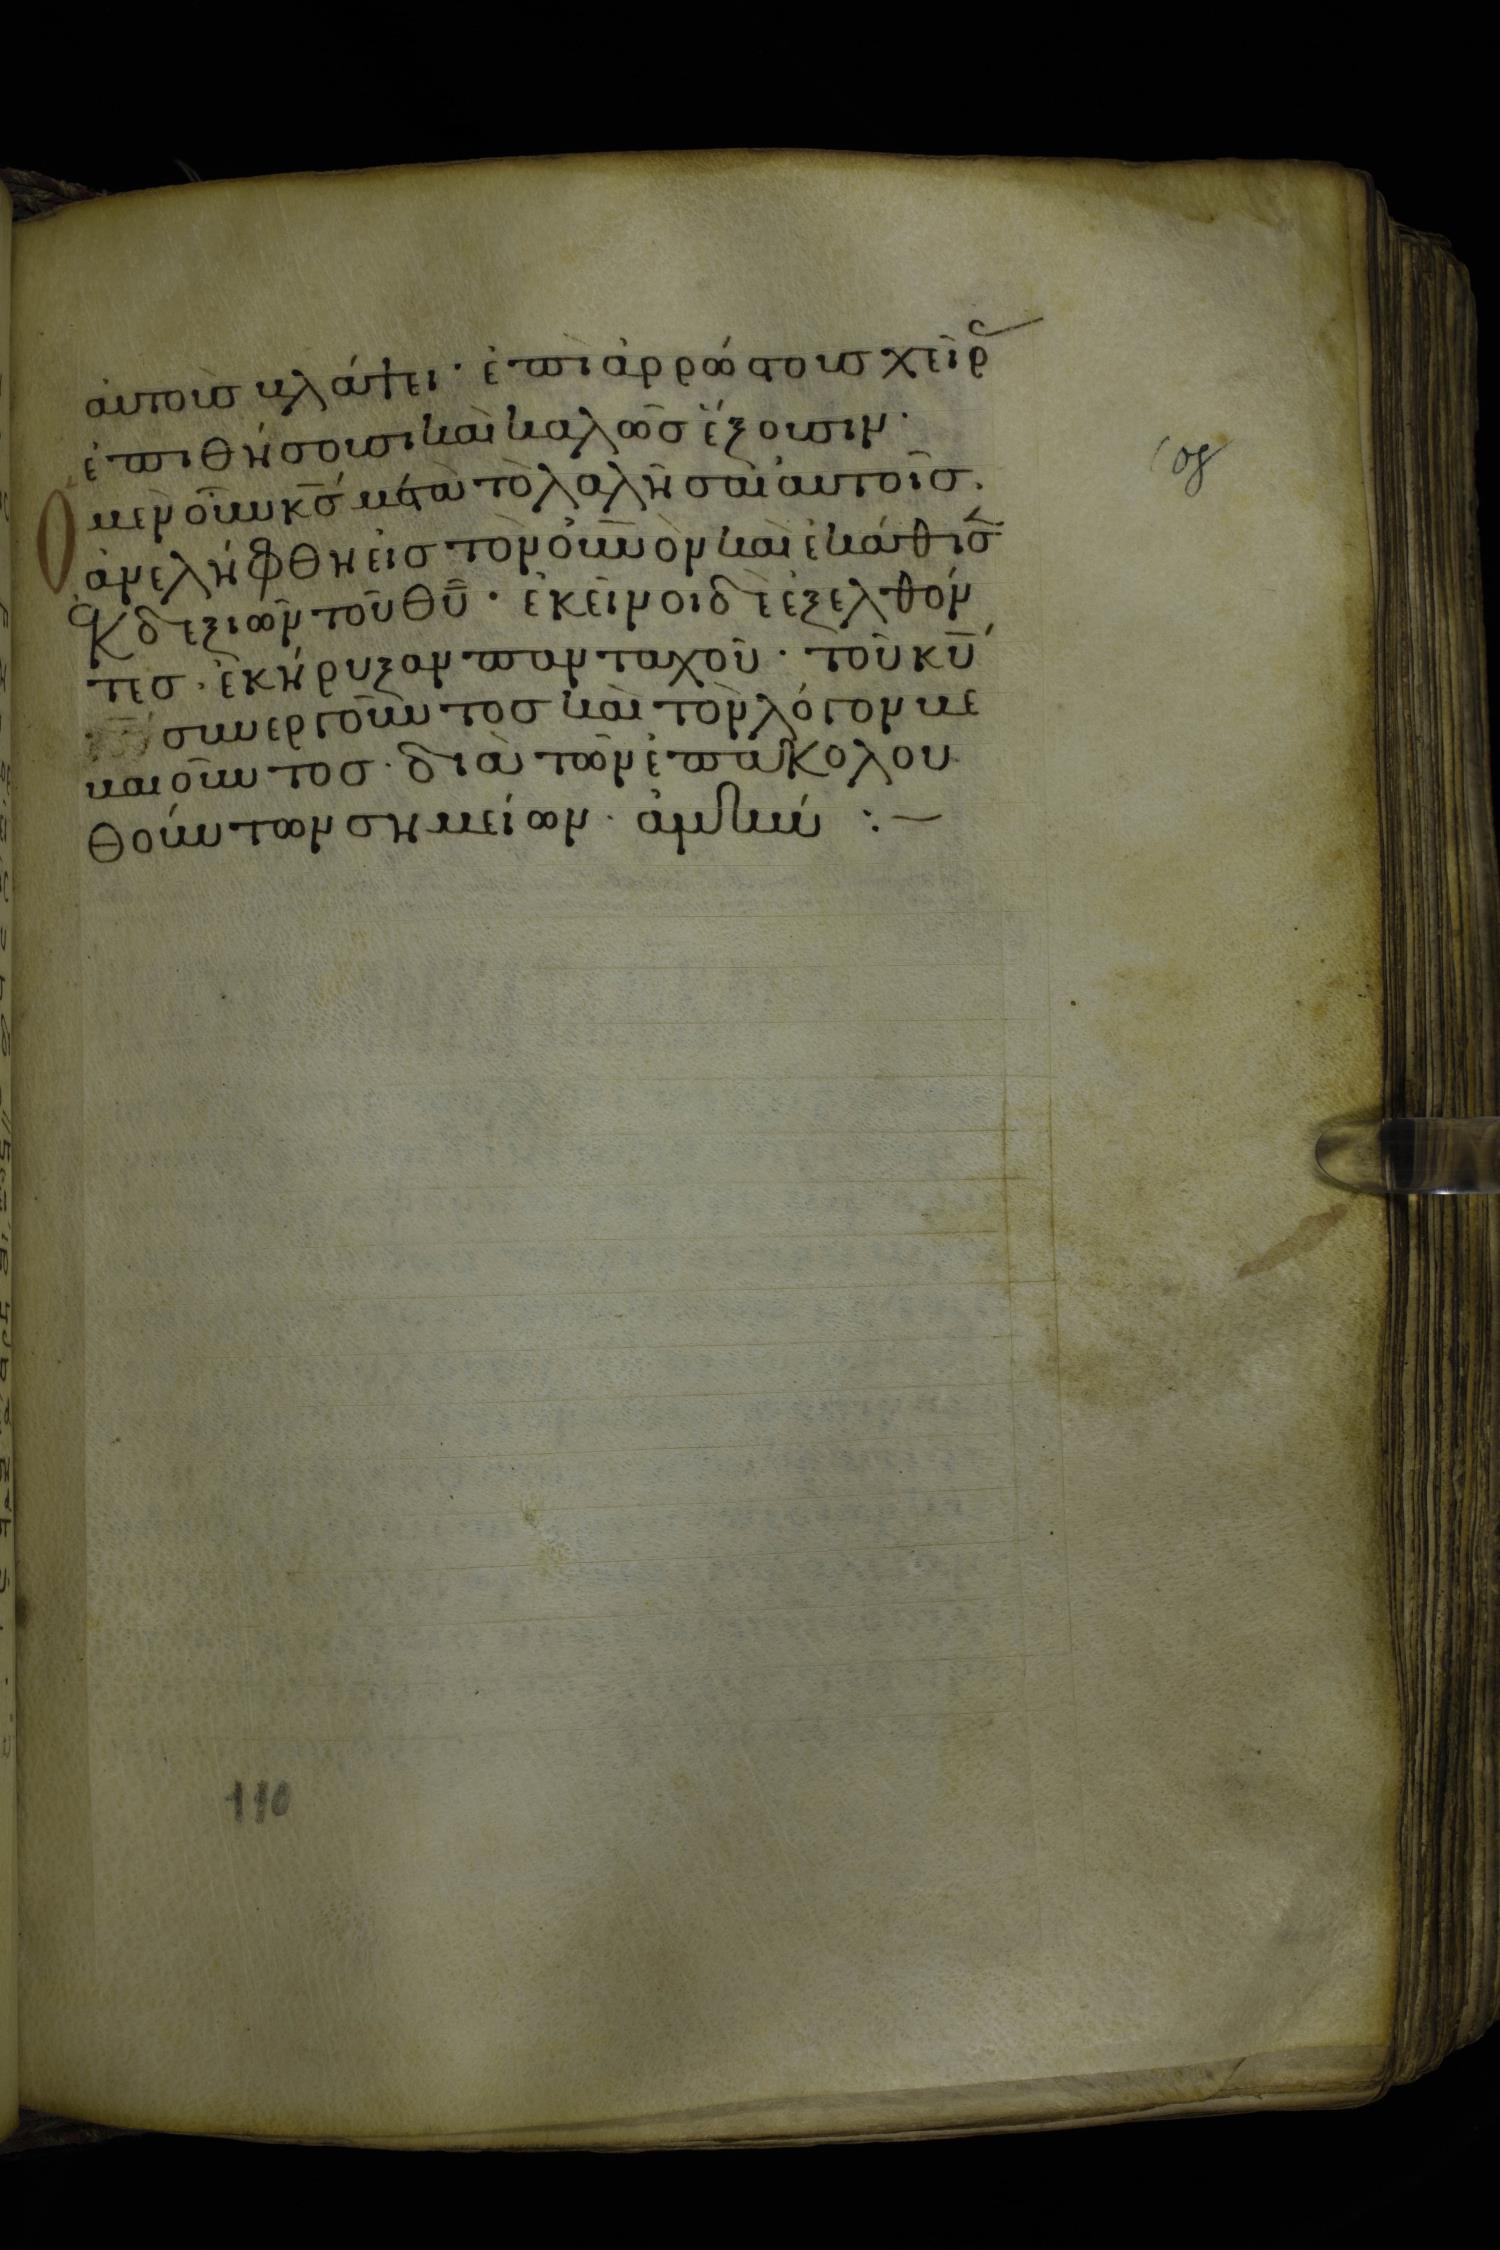 αὐτοὺσ βλάψει · ἐπὶ ἀρρώστουσ χεῖρ
ἐπιθήσουσι καὶ καλῶσ ἕξουσιν ·
Ο μὲν οὖν κ̅σ μετὰ τὸ λαλῆσαι αὐτοῖσ ·
ἀνελήφθη εἰσ τὸν οὐ̅νὸν καὶ ἐκάθισ
ἐκ δεξιῶν τοῦ θ̅υ · ἐκεῖνοι δὲ ἐξελθόν
τεσ · ἐκήρυξαν πανταχοῦ · τοῦ κ̅υ
συνεργοῦντοσ καὶ τὸν λόγον βε
βαιοῦντοσ · διὰ τῶν ἐπακολου
θούντων σημείων · ἀμήν :—
110